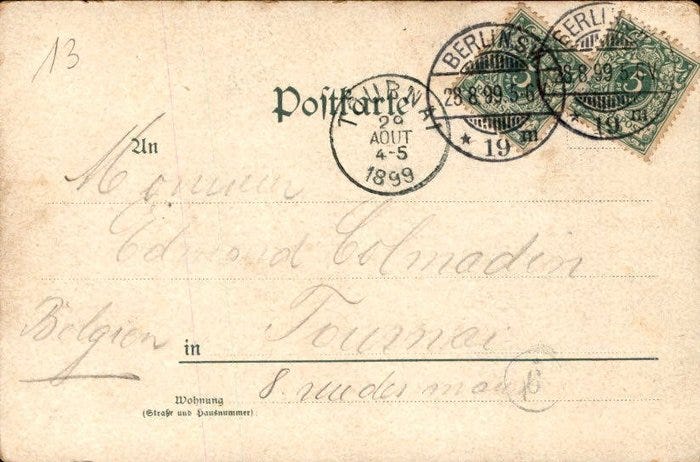 13
BERLIN S.W.
28.8.99.5-6
* 19 m
BERLIN
28.8.99.5-
* 19 m
5
5
Postkarte
TOURNAI
29
AOUT
4-5
1899
An
Monsieur
Edmond Colmadin
Belgien
in Tournai
8. rue des maux
Wohnung
(Straße und Hausnummer)